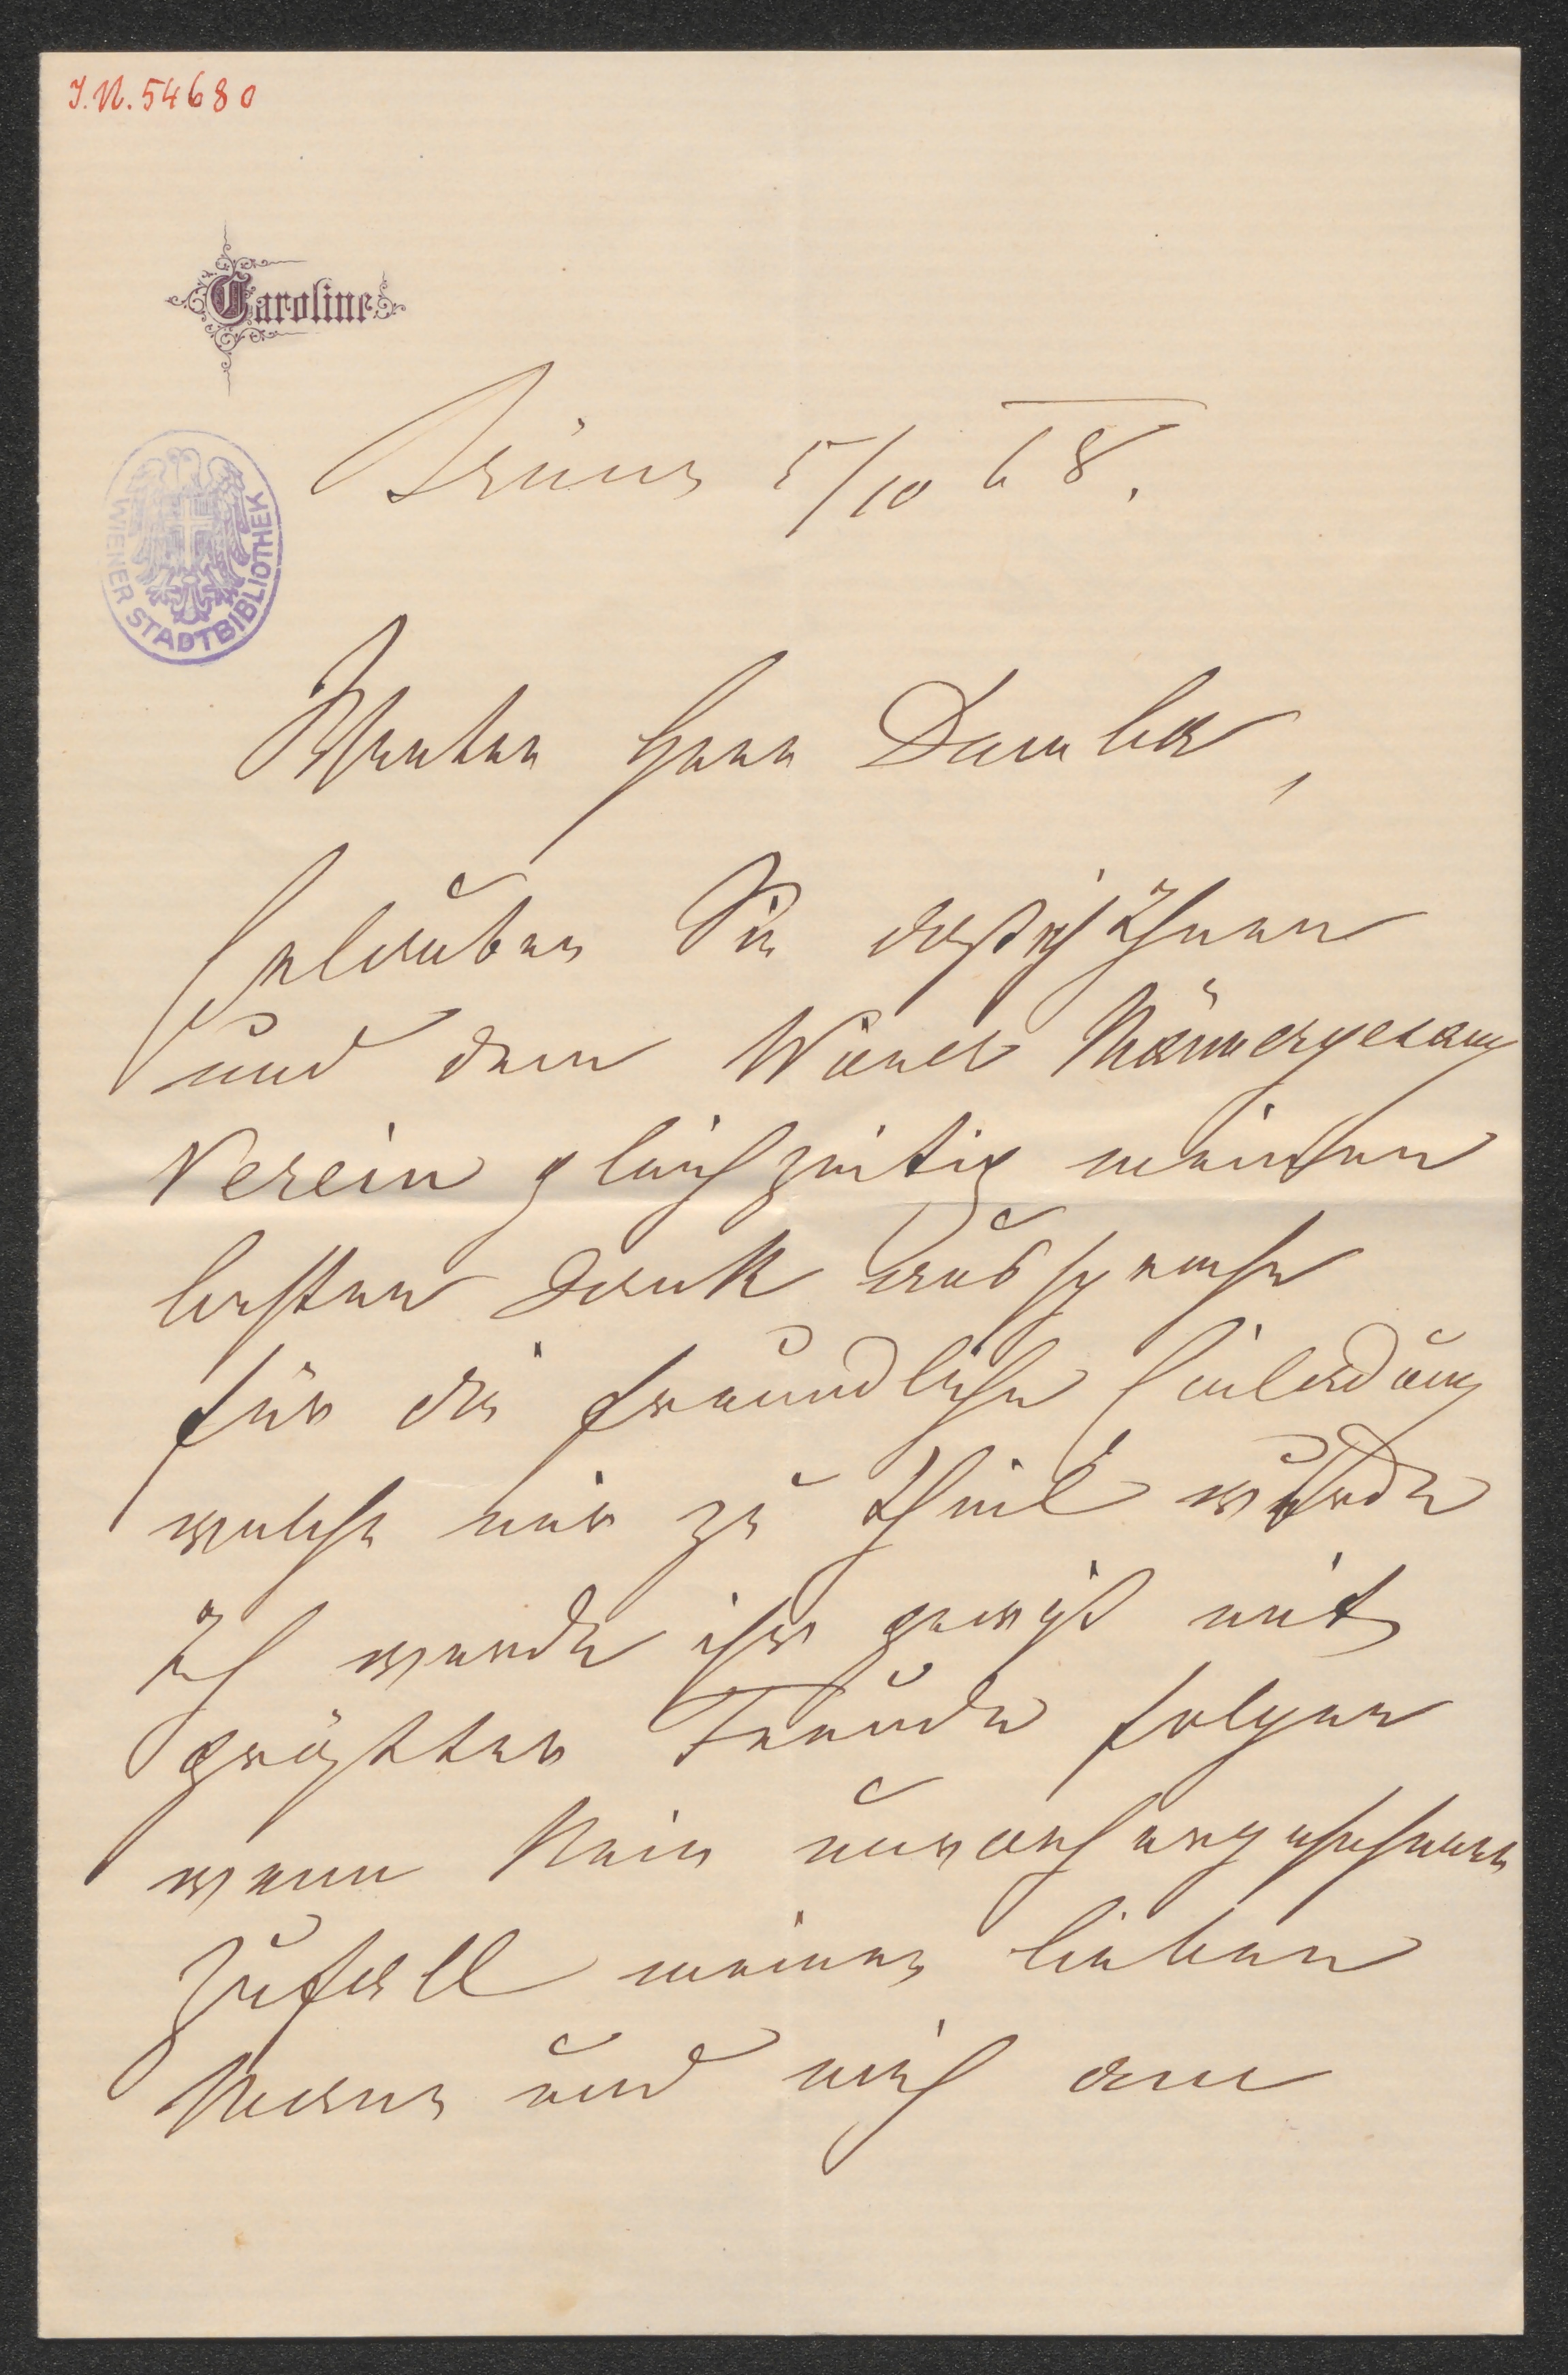 J.N. 54680
Caroline
WIENER STADTBIBLIOTHEK
Brünn 5/10 68.
Werther Herr Dumba,
Erlauben Sie daß ich Ihnen
und dem Wiener Männergesang
Verein gleichzeitig meinen
besten Dank ausspreche
für die freundliche Einladung
welche mir zu Theil wurde
Ich werde ihr gewiß mit
größter Freude folgen
wenn kein unvorhergesehener
Zufall meinen lieben
Mann und mich am